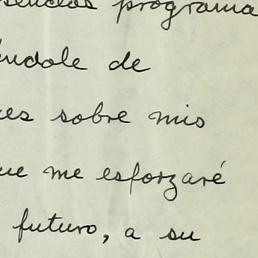 programa
ndole de
es sobre mis
ue me esforzaré
futuro, a su